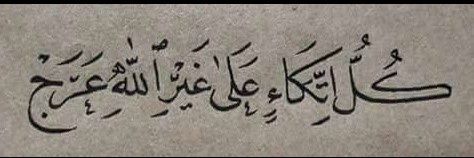 كُلُّ اتِّكَاءٍ عَلَىٰ غَيْرِ ٱللَّهِ عَرَجْ